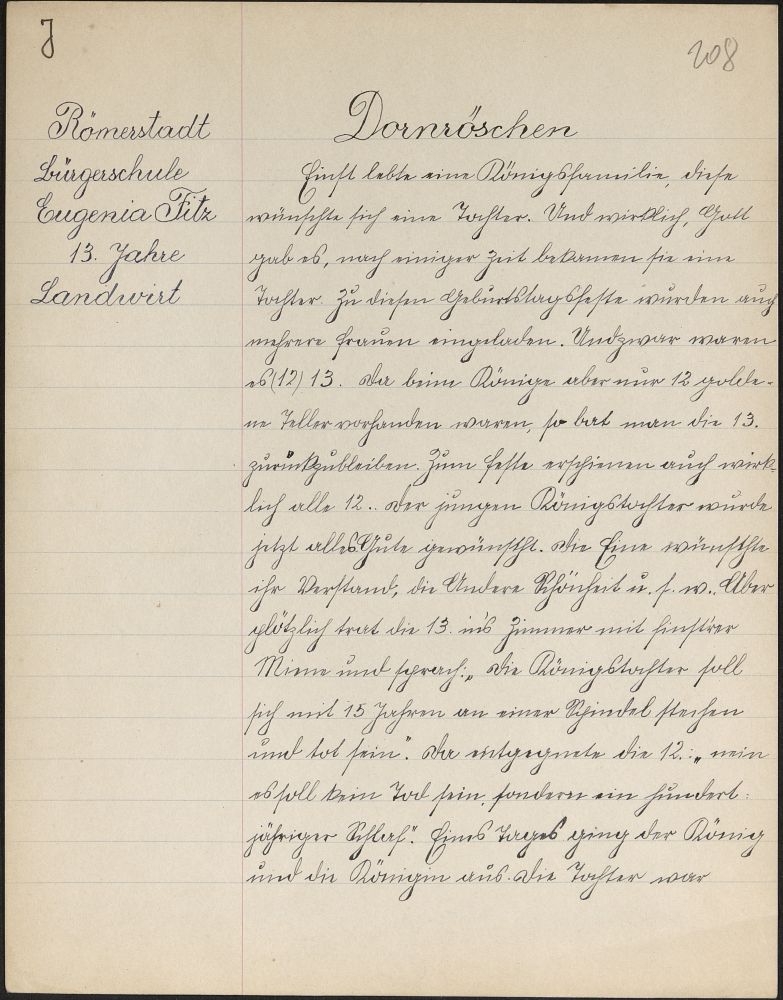 J
208
Römerstadt
Bürgerschule
Eugenia Fitz
13. Jahre
Landwirt
Dornröschen
Einst lebte eine Königsfamilie, diese
wünschte sich eine Tochter. Und wirklich, Gott
gab es, nach einiger Zeit bekamen sie eine
Tochter. Zu diesen Geburtstagsfeste wurden auch
mehrere Frauen eingeladen. Undzwar waren
es (12) 13. Da beim Könige aber nur 12 golde-
ne Teller vorhanden waren, so bat man die 13.
zurückzubleiben. Zum Feste erschienen auch wirk-
lich alle 12.. Der jungen Königstochter wurde
jetzt alles Gute gewünscht. Die Eine wünschte
ihr Verstand, die Andere Schönheit u. s. w.. Aber
plötzlich trat die 13. in's Zimmer mit finst'rer
Miene und sprach: „Die Königstochter soll
sich mit 15 Jahren an einer Spindel stechen
und tot sein". Da entgegnete die 12.: „nein
es soll kein Tod sein, sondern ein hundert:
jähriger Schlaf". Eines Tages ging der König
und die Königin aus. Die Tochter war